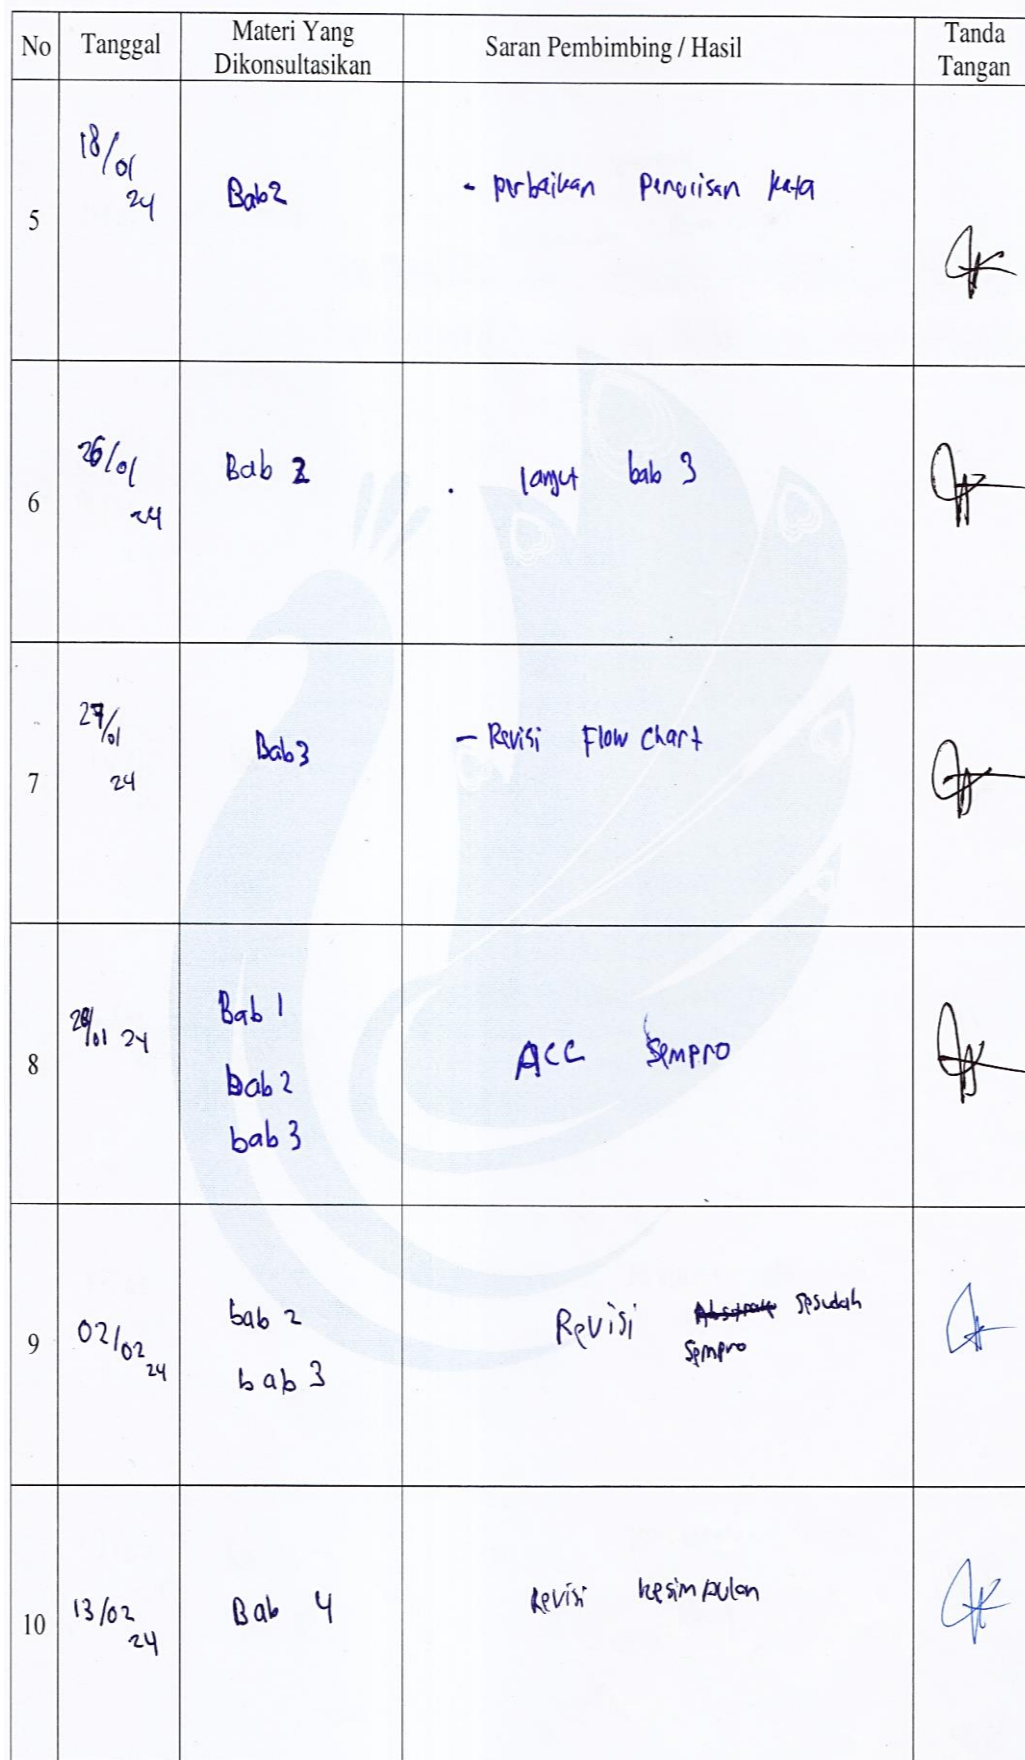 No Tanggal Materi Yang Dikonsultasikan Saran Pembimbing / Hasil Tanda Tangan
5 18/01 24 Bab 2 - perbaikan Penulisan kata
6 26/01 24 Bab 2 . lanjut bab 3
7 27/01 24 Bab 3 - Revisi Flow Chart
8 28/01 24 Bab 1 ACC Sempro
bab 2
bab 3
9 02/02 24 bab 2 Revisi sesudah
bab 3 Sempro
10 13/02 24 Bab 4 Revisi kesimpulan